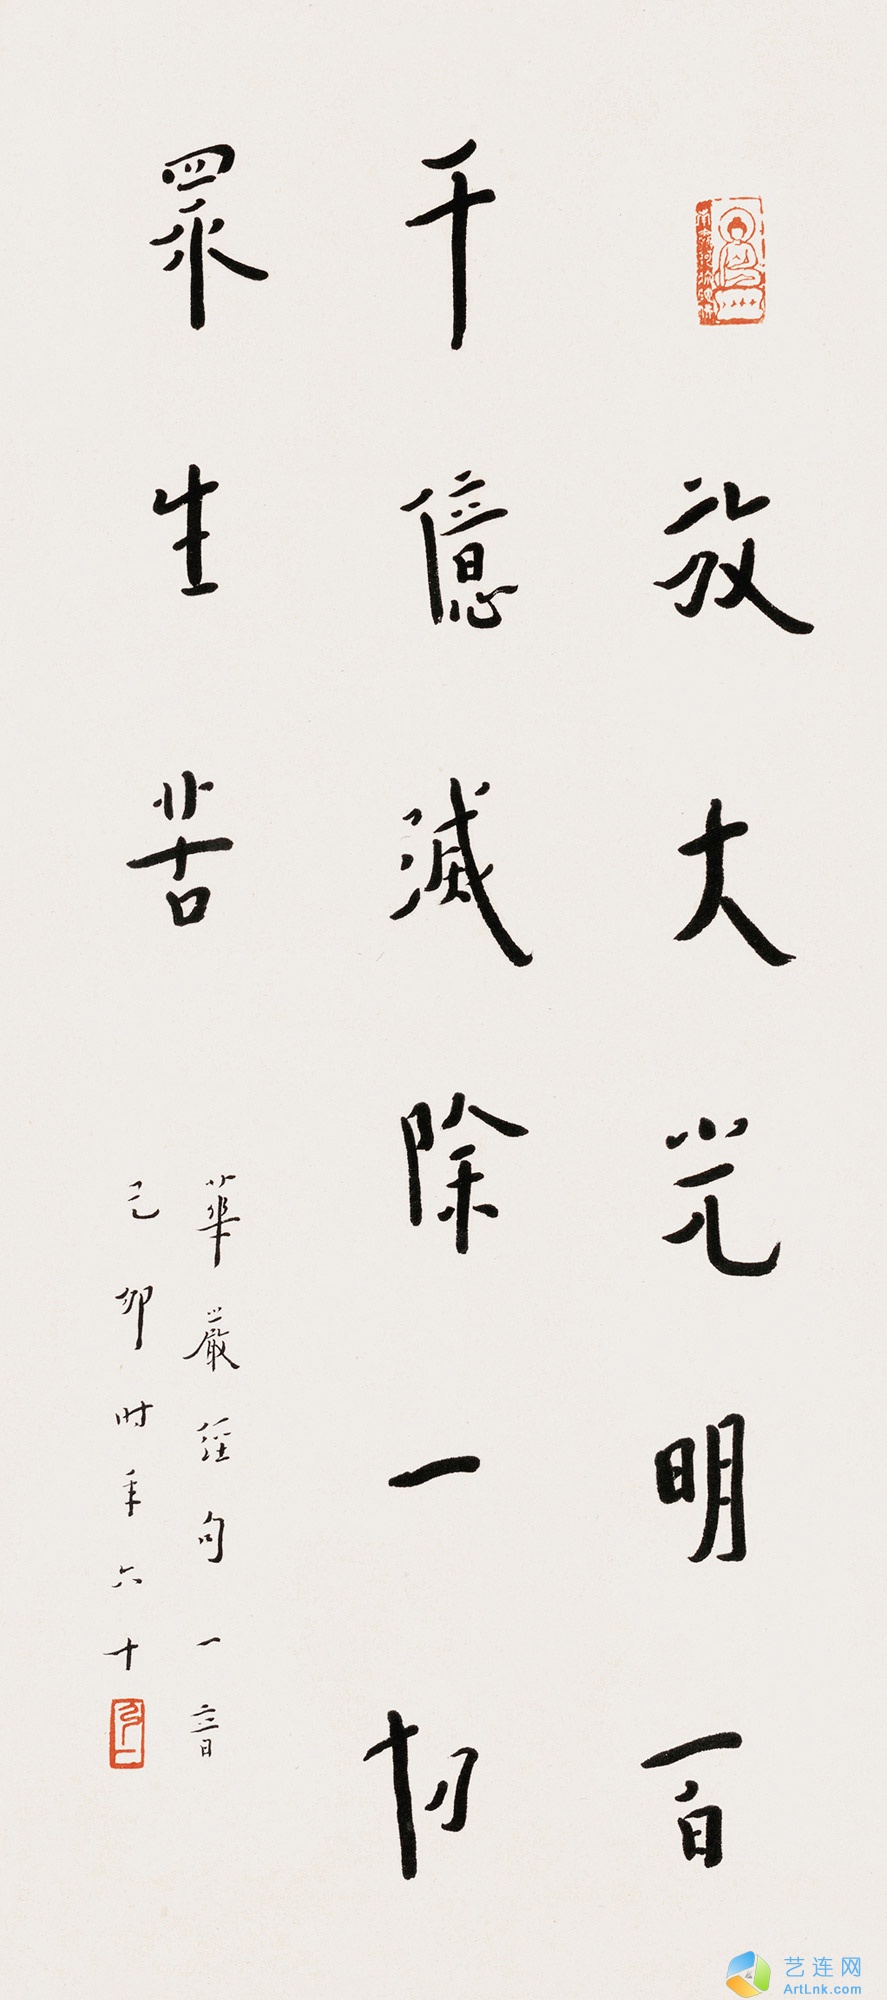 放大光明百
千億滅除一切
眾生苦
華嚴經句一音
己卯時年六十
艺连网
ArtLnk.com